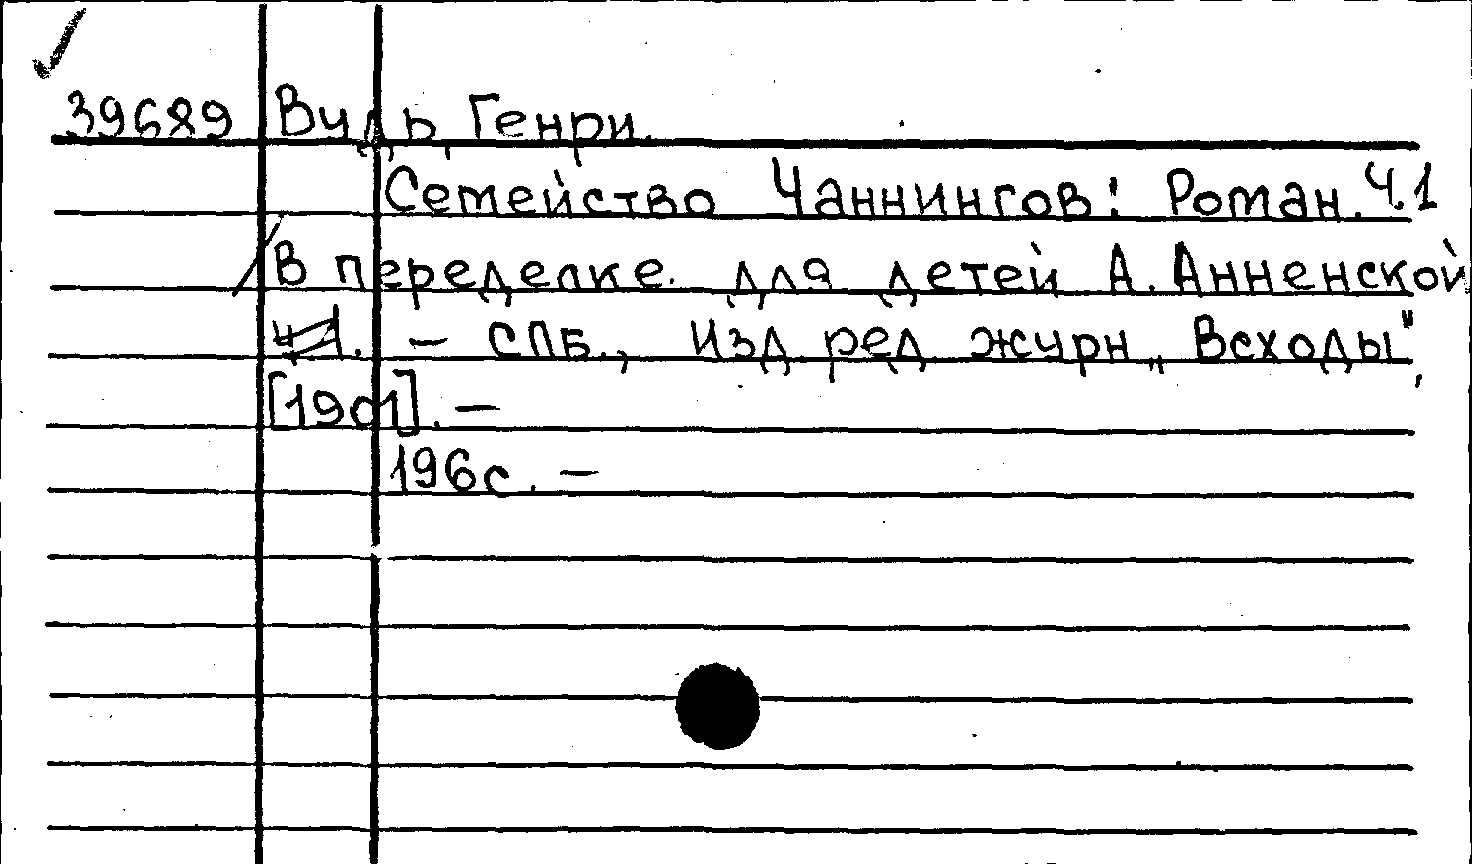 39689 Вудь, Генри.
Семейство Чаннингов: Роман. Ч.1
/В переделке. для детей А. Анненской
– СПб., Изд. ред. журн. „Всходы",
[1901]. –
196с. –